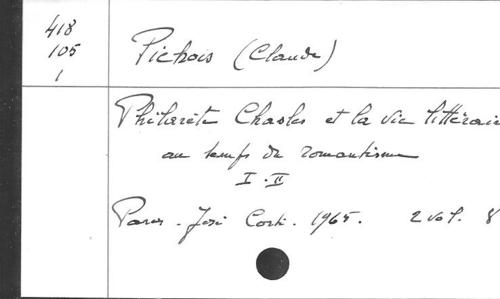 418
105
1
Pichois (Claude)
Philarète Chasles et la vie littérai
au temps du romantisme
I-II
Paris. José Corti. 1965. 2 vol. 8